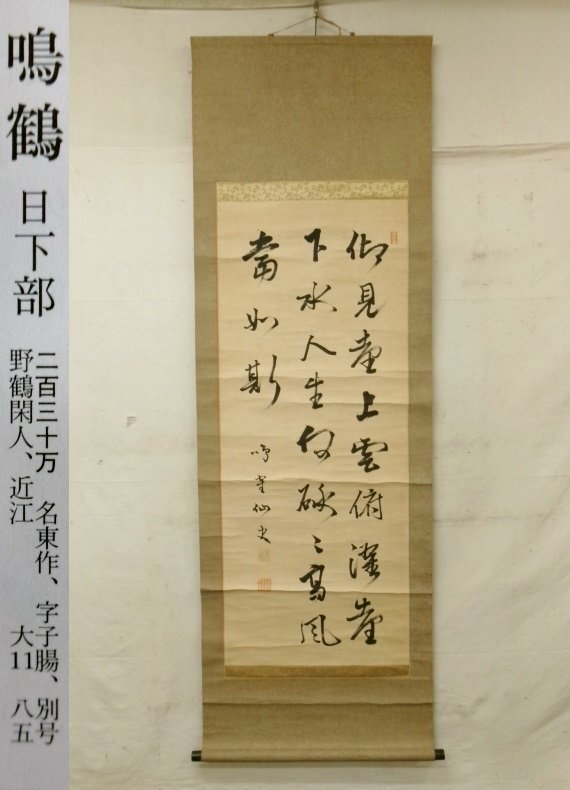 鳴鶴 日下部
二百三十万 名東作、字子腸、別号
野鶴閑人、近江 大11 八五
仰見臺上雲俯濯臺
下水人生何碌〻高風
當如斯
鳴隺仙史